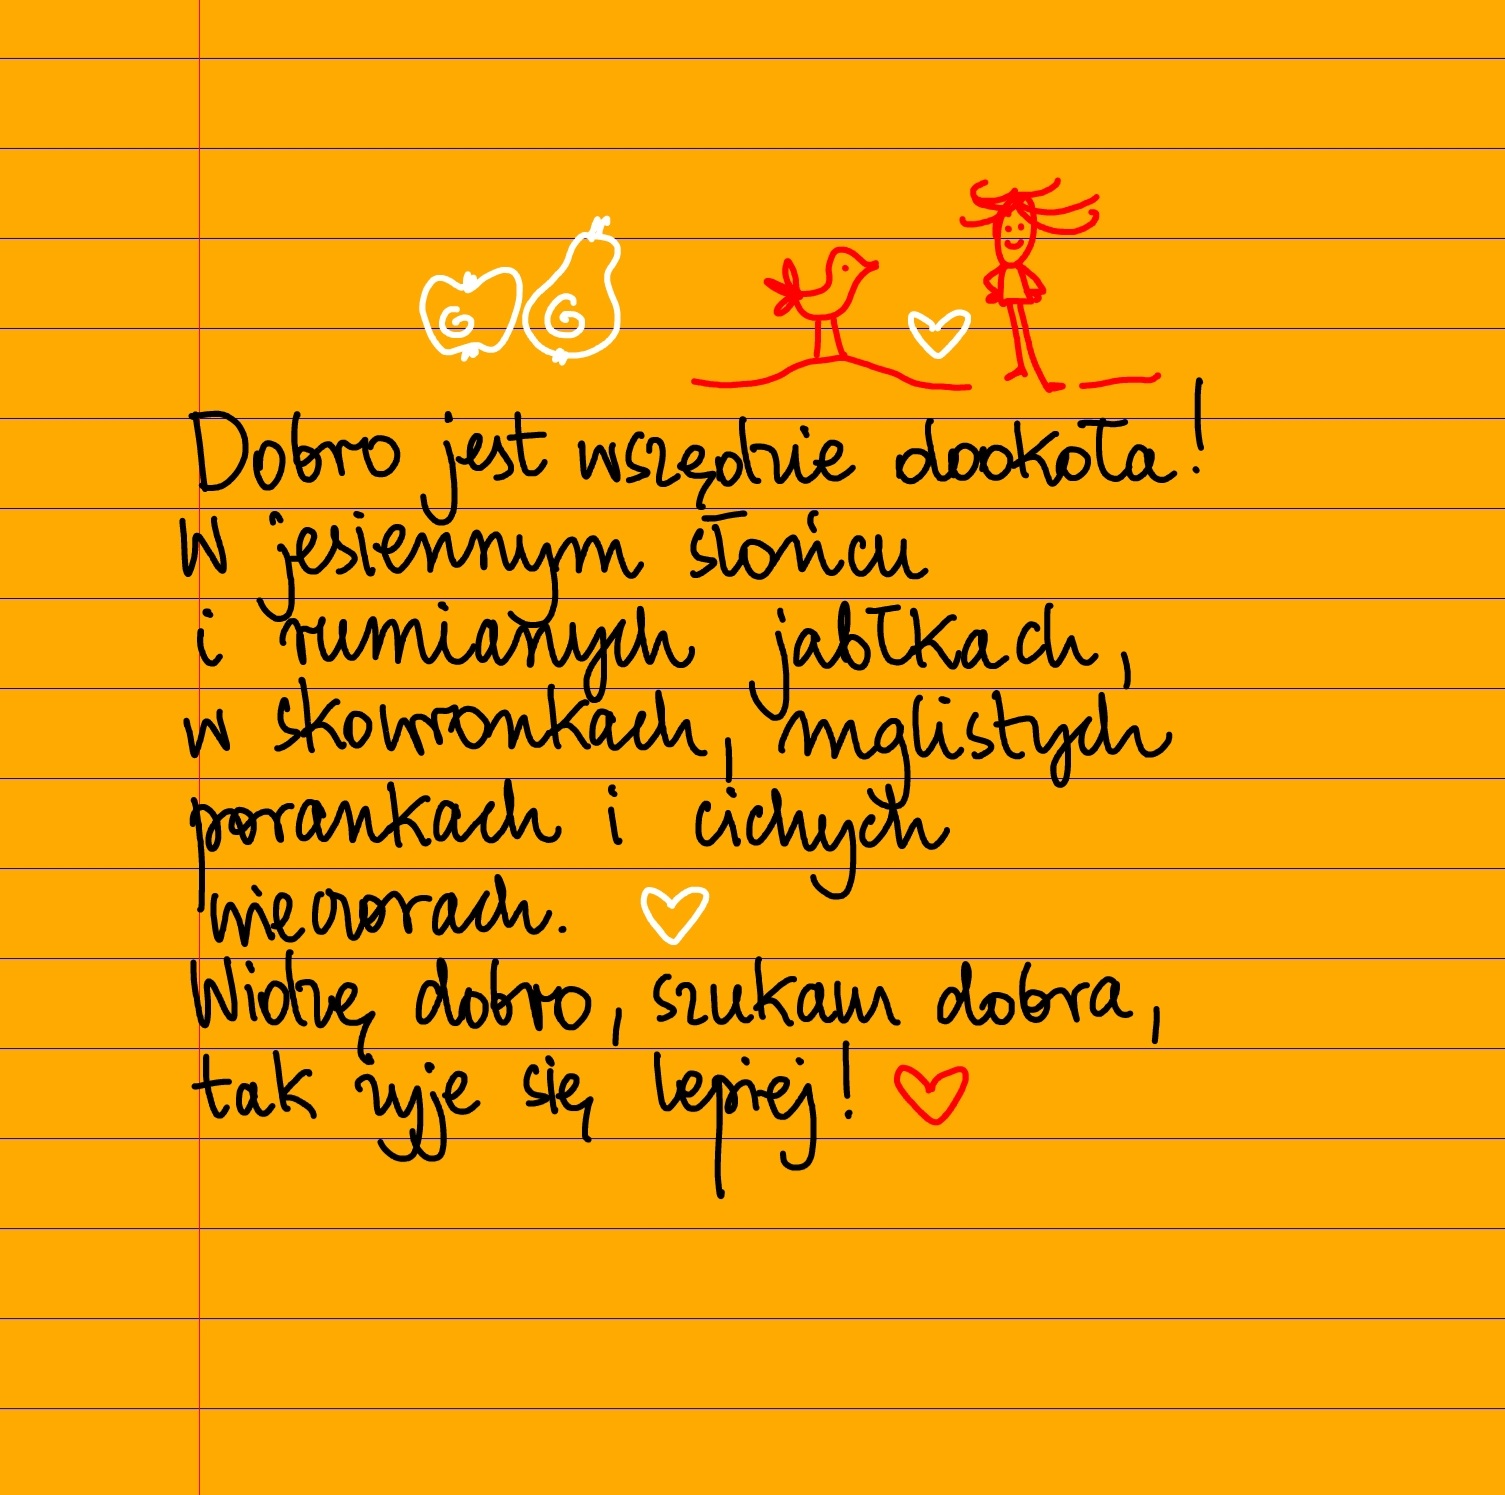 Dobro jest wszędzie dookoła!
W jesiennym słońcu
i rumianych jabłkach,
w skowronkach, mglistych
porankach i cichych
wieczorach.
Widzę dobro, szukam dobra,
tak żyje się lepiej!